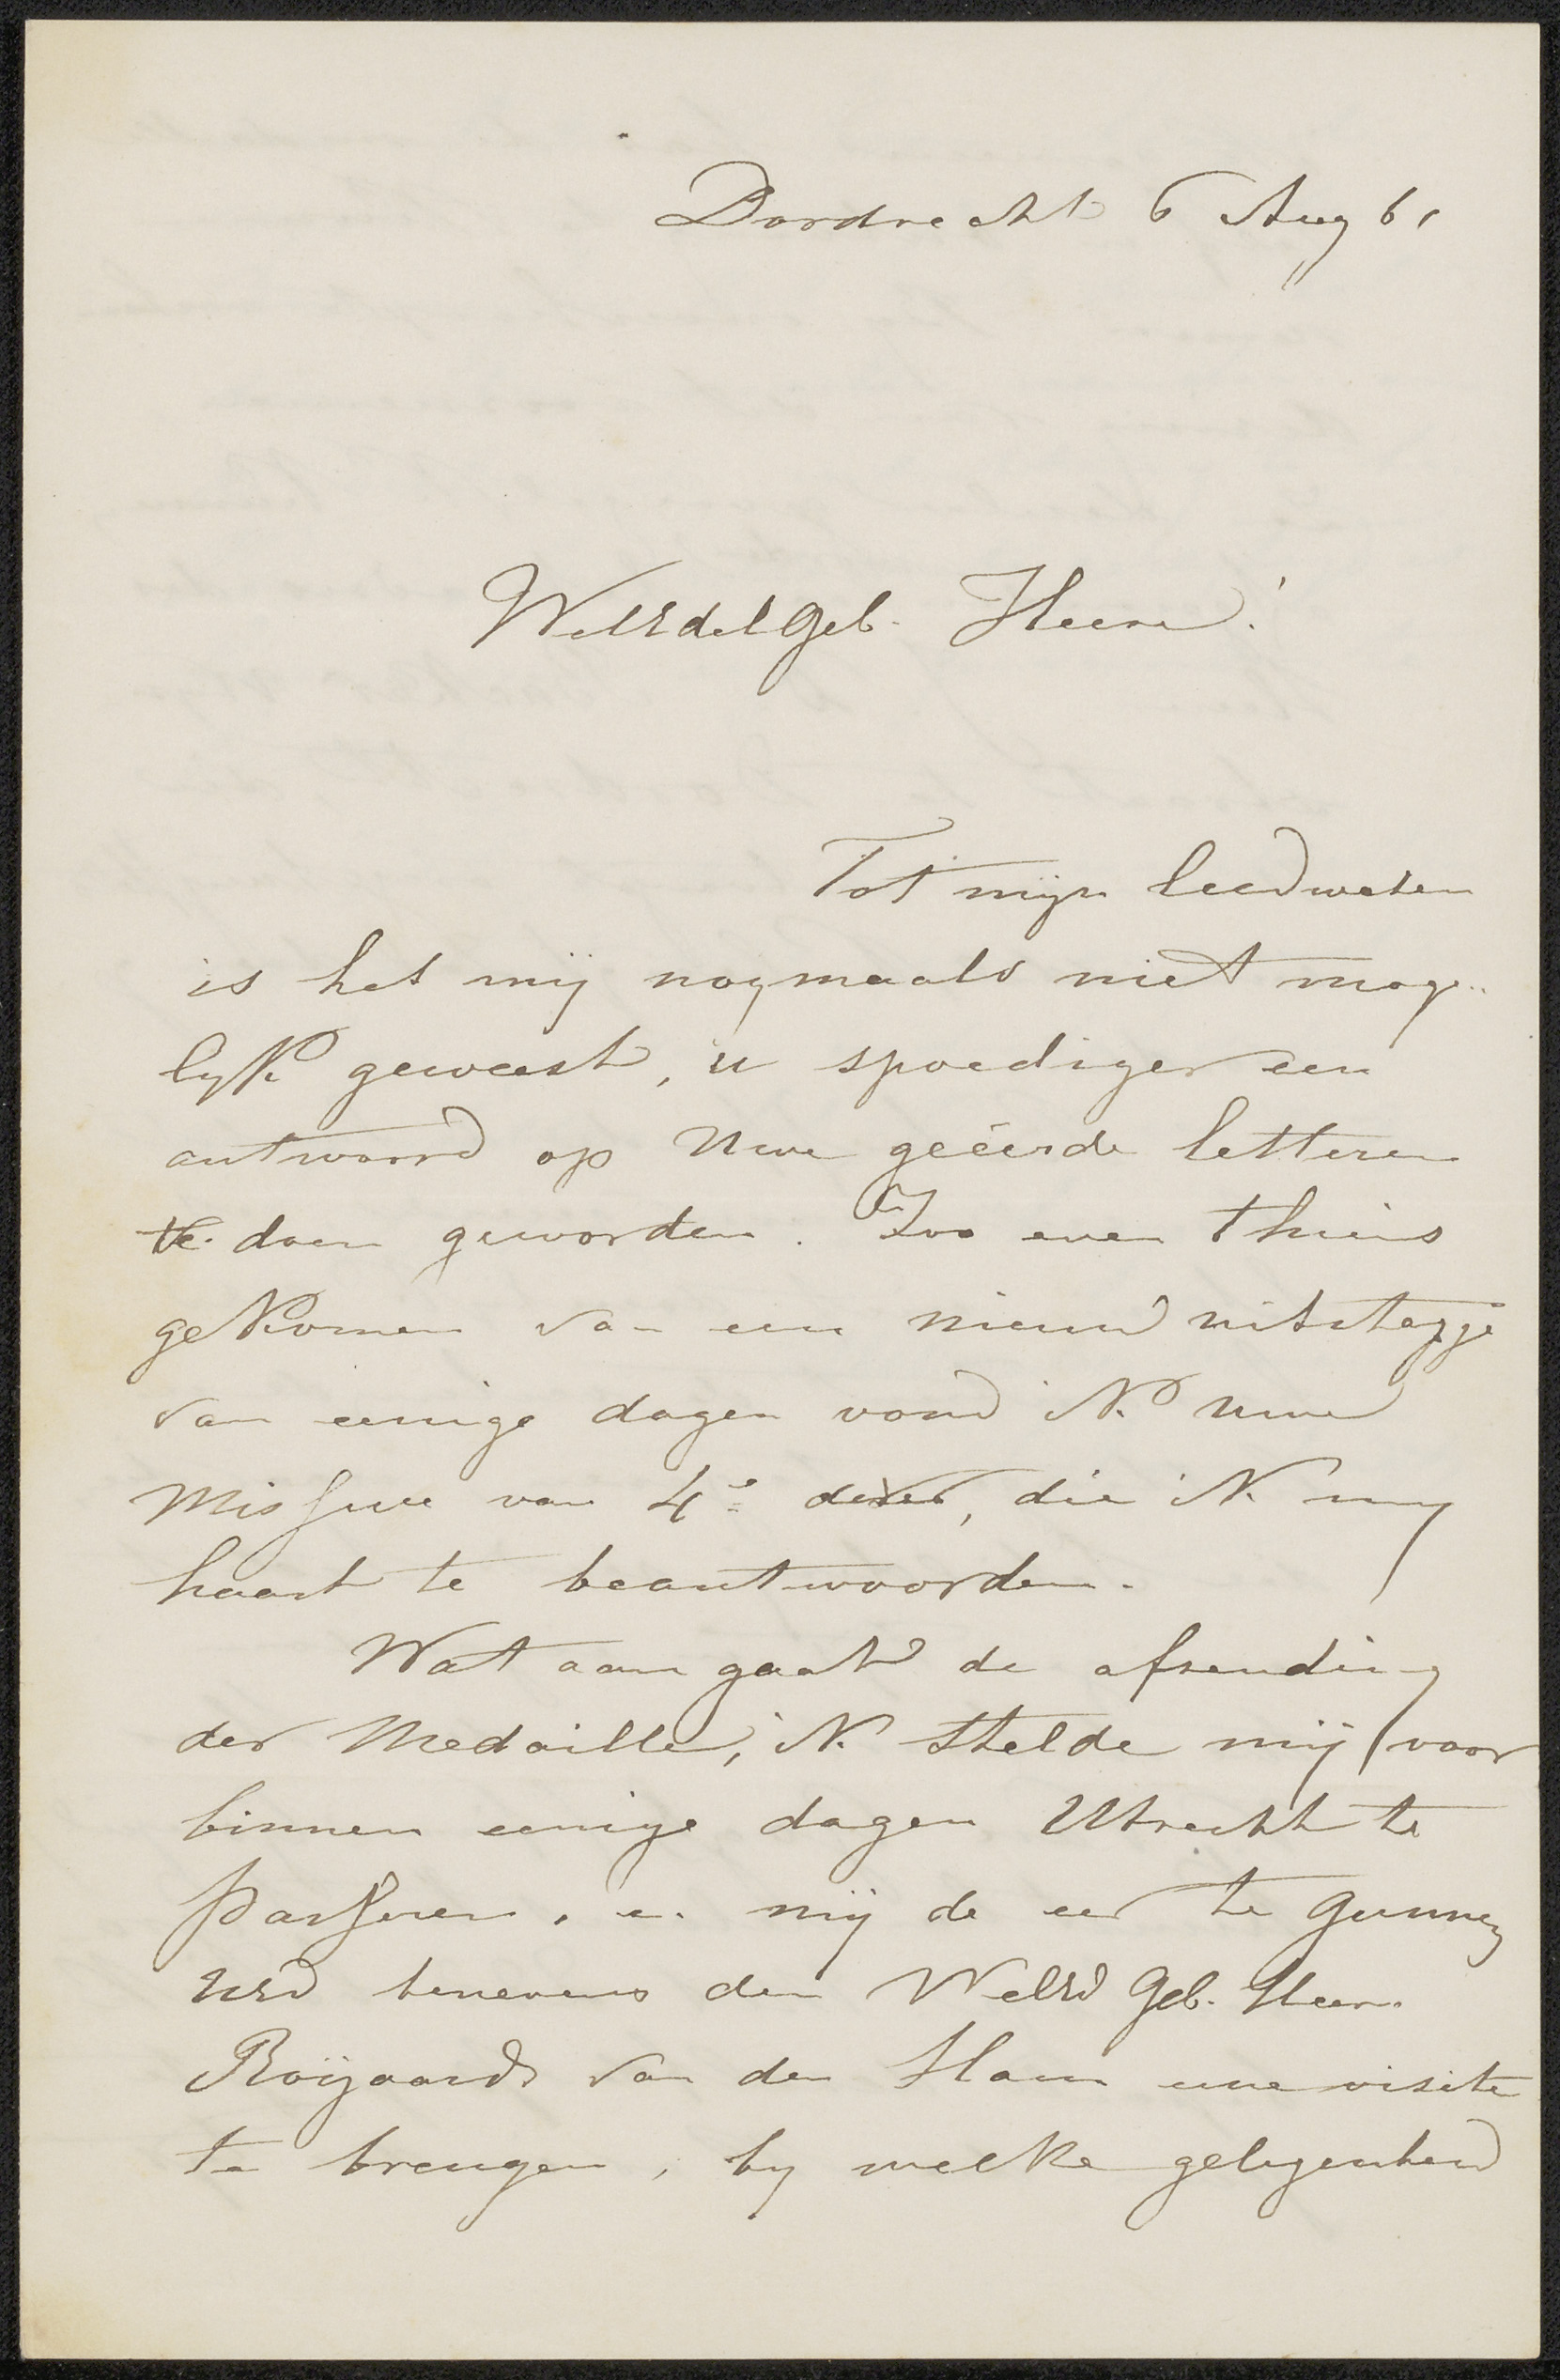 Dordrecht 6 Aug 61
WelEdelGeb. Heere!
Tot mijn leedweten
is het mij nogmaals niet moge-
lyk geweest, u spoediger een
antwoord op Uwe geëerde letteren
te doen geworden. Zoo even thuis
gekomen van een nieuw uitstapje
van eenige dagen vond ik uwe
Missive van 4e dezer, die ik my
haast te beantwoorden.
Wat aangaat de afzending
der Medaille, ik stelde mij voor
binnen eenige dagen Utrecht te
passeren, en mij de eer te gunnen
UEd benevens den WelEd Geb. Heer
Röijaards van den Ham eene visite
te brengen, by welke gelegenheid